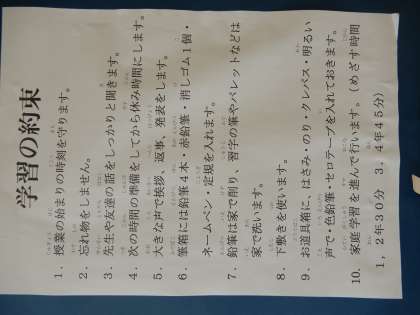 学習の約束
1．授業の始まりの時刻を守ります。
2．忘れ物をしません。
3．先生や友達の話をしっかりと聞きます。
4．次の時間の準備をしてから休み時間にします。
5．大きな声で挨拶、返事、発表をします。
6．筆箱には鉛筆4本・赤鉛筆・消しゴム1個・
ネームペン・定規を入れます。
7．鉛筆は家で削り、習字の筆やパレットなどは
家で洗います。
8．下敷きを使います。
9．お道具箱に、はさみ・のり・クレパス・明るい
声で・色鉛筆・セロテープを入れておきます。
10．家庭学習を進んで行います。（めざす時間
1，2年30分　3，4年45分）